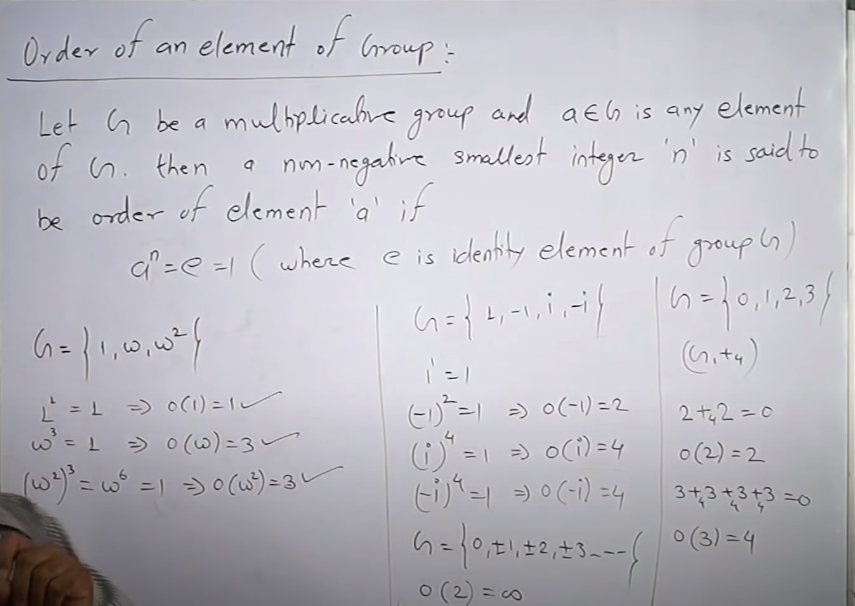 Order of an element of Group:-
Let G be a multiplicative group and a∈G is any element
of G. then a non-negative smallest integer 'n' is said to
be order of element 'a' if
aⁿ = e = 1 ( where e is identity element of group G)
G = {1, ω, ω²}
1¹ = 1 ⇒ O(1) = 1 ✓
ω³ = 1 ⇒ O(ω) = 3 ✓
(ω²)³ = ω⁶ = 1 ⇒ O(ω²) = 3 ✓
G = {1, -1, i, -i}
1¹ = 1
(-1)² = 1 ⇒ O(-1) = 2
(i)⁴ = 1 ⇒ O(i) = 4
(-i)⁴ = 1 ⇒ O(-i) = 4
G = {0, ±1, ±2, ±3, ----}
O(2) = ∞
G = {0, 1, 2, 3}
(G, +₄)
2 +₄ 2 = 0
O(2) = 2
3 +₄ 3 +₄ 3 +₄ 3 = 0
O(3) = 4